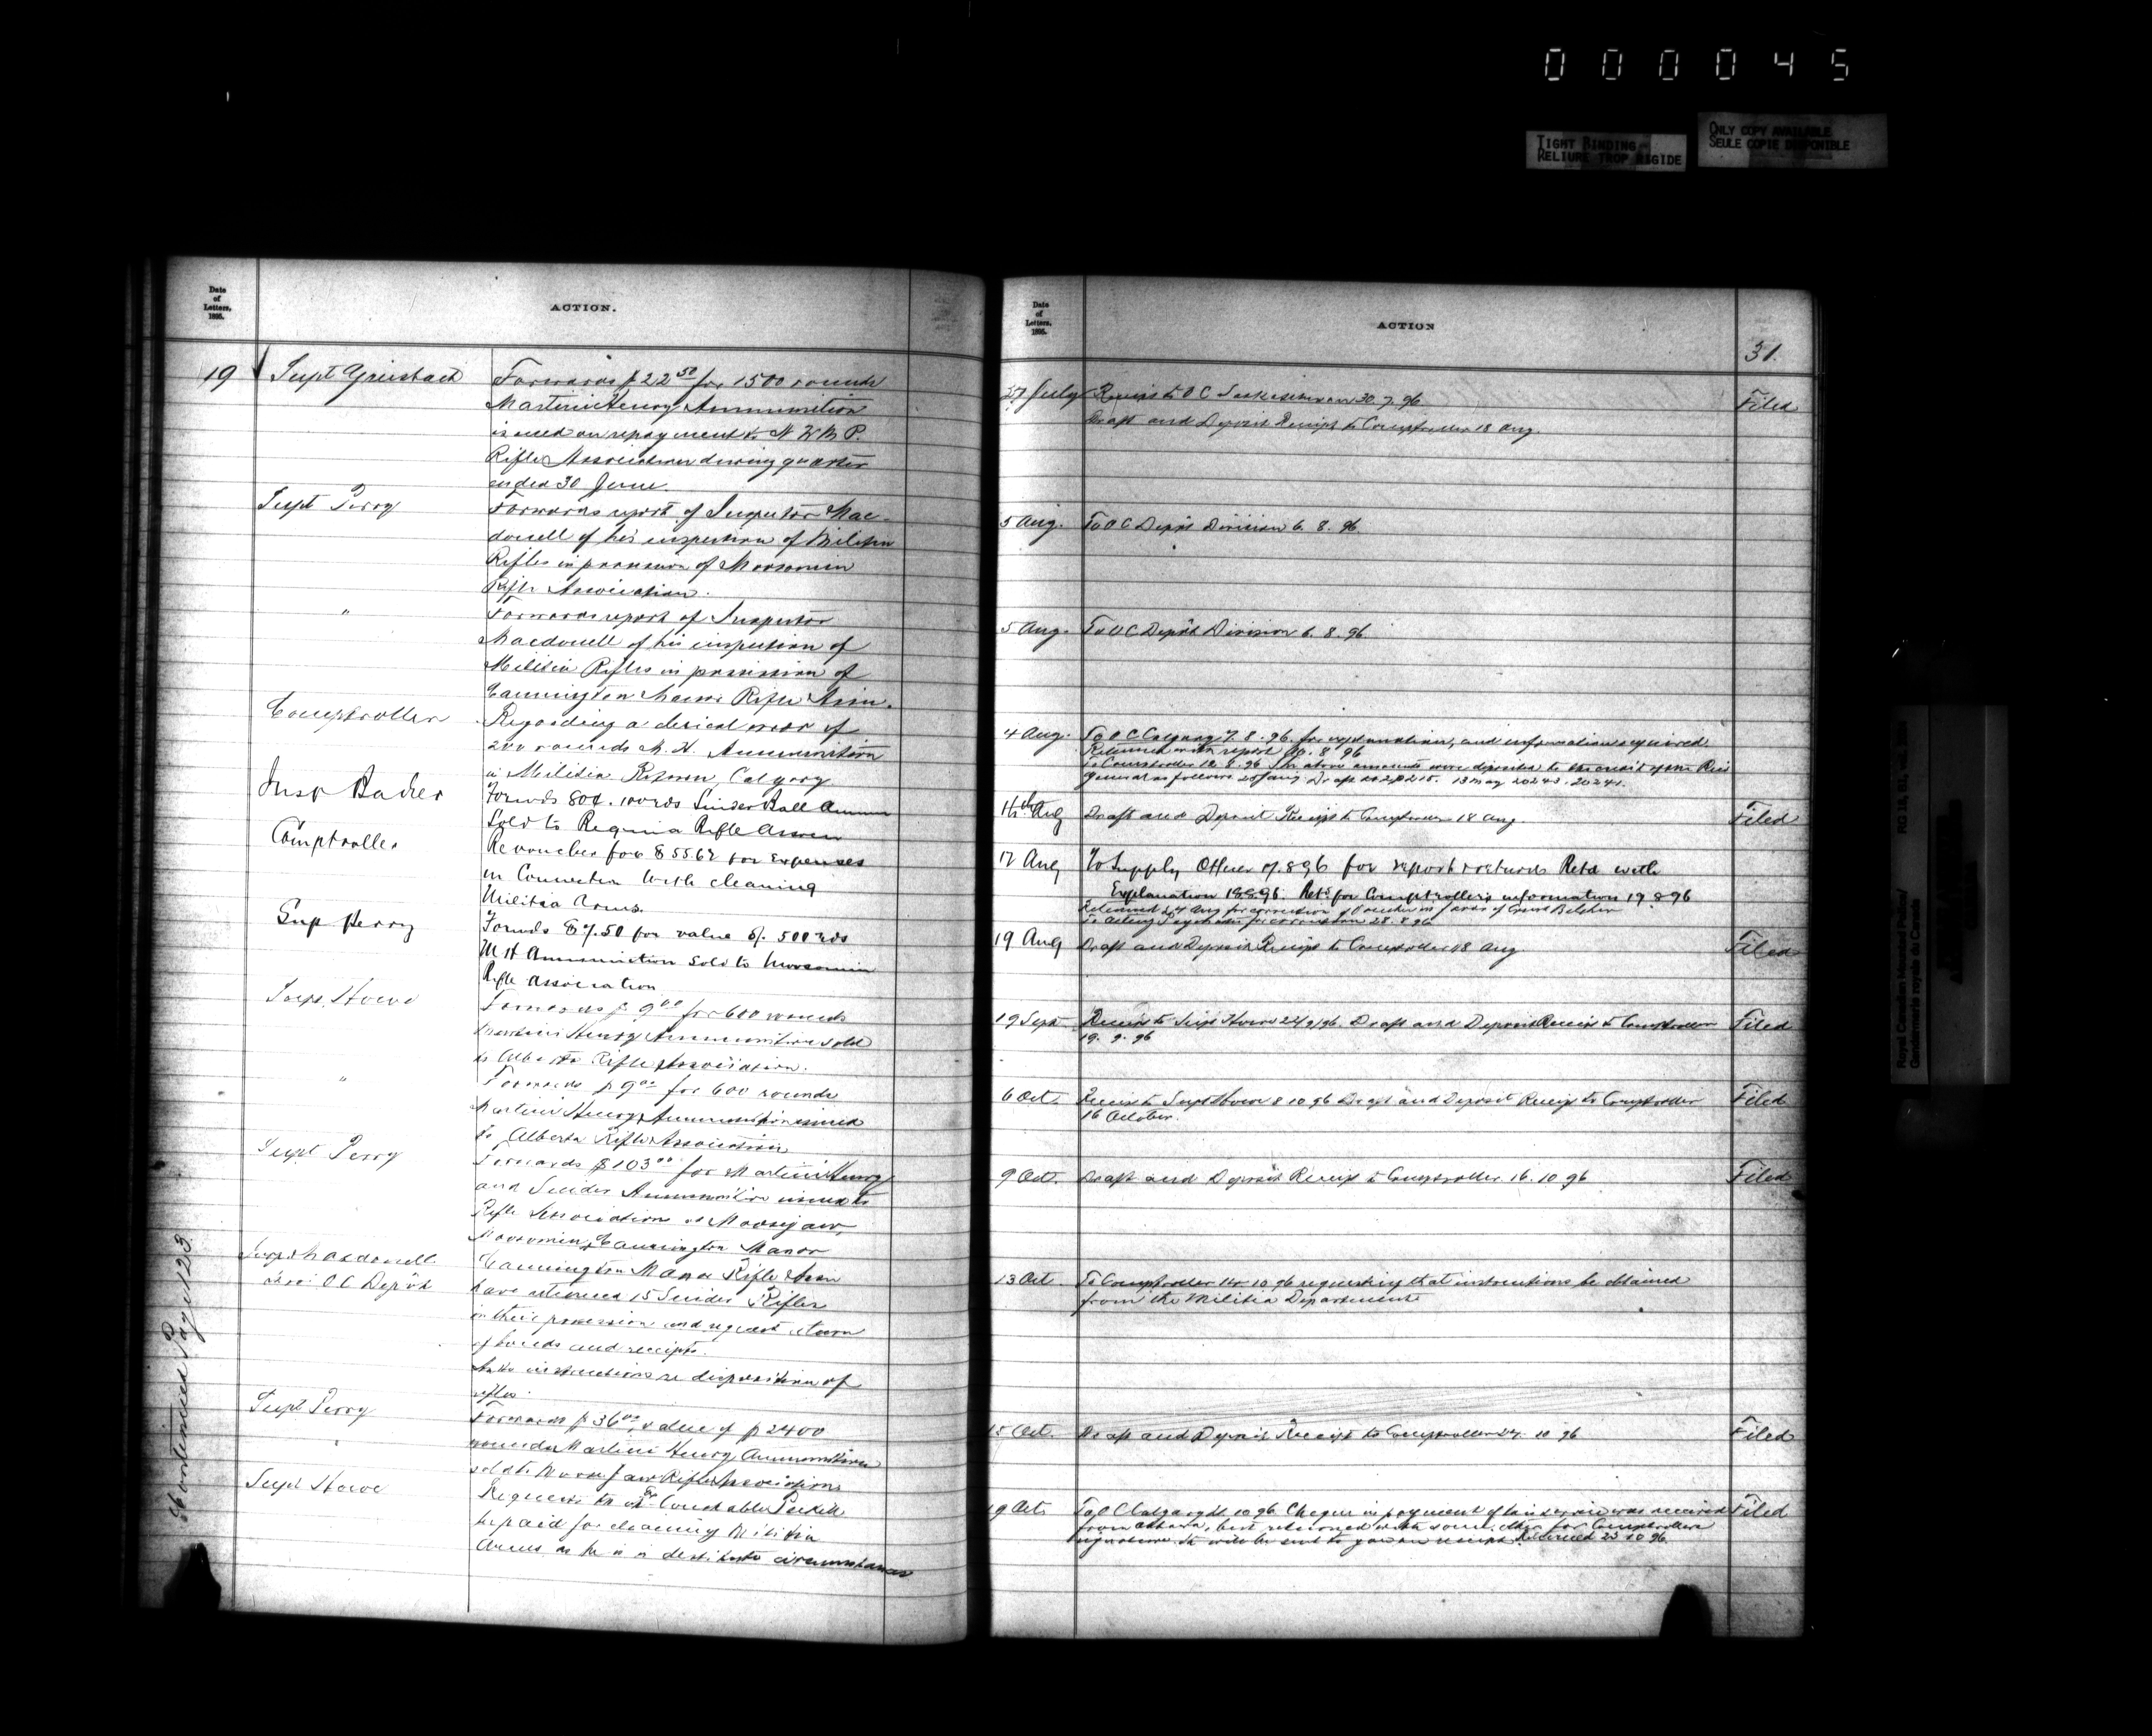 000045
TIGHT BINDING
RELIURE TROP RIGIDE
ONLY COPY AVAILABLE
SEULE COPIE DISPONIBLE
Date
of
Letters,
1895.
ACTION.
19 Supt Griesbach
Forwards $22 50 for 1500 rounds
Martini Henry Ammunition
issued on repayment to N W M P.
Rifle Association during quarter
ended 30 June.
Supt Perry
Forwards report of Inspector Mac-
donell of his inspection of Militia
Rifles in possession of Moosomin
Rifle Association.
"
Forwards report of Inspector
Macdonell of his inspection of
Militia Rifles in possession of
Cannington Manor Rifle Assn.
Comptroller
Regarding a clerical error of
200 rounds M. H. Ammunition
in Militia Return, Calgary
Insp
Forwds 80¢. 100 rds Snider Ball Ammn
Sold to Regina Rifle Assocn
Comptroller
Re voucher for $55.62 for Expenses
in Connection with cleaning
Militia Arms.
Sup Perry
Forwds $7.50 for value of 500 rds
M H Ammunition sold to Moosomin
Rifle Association
Supt. Howe
Forwards $9 00 for 600 rounds
Martini Henry Ammunition sold
to Alberta Rifle Association.
"
Forwards $9 00 for 600 rounds
Martini Henry Ammunition issued
to Alberta Rifle Association
Supt Perry
Forwards $103 00 for Martini Henry
and Snider Ammunition issued to
Rifle Associations at Moosejaw,
Moosomin, Cannington Manor
Insp. Macdonell
O C Depôt
Cannington Manor Rifle Assn
have returned 15 Snider Rifles
in their possession and request return
of bonds and receipts.
Asks instructions re disposition of
rifles.
Supt Perry
Forwards $36 00, value of 2400
rounds Martini Henry Ammunition
sold to Moose Jaw Rifle Association
Supt Howe
Requests that Ex Constable
be paid for cleaning Militia
Arms as he is in destitute circumstances
Continued Page 123
Date
of
Letters,
1895.
ACTION
31.
27 July Receipt to O C Saskatchewan 30.7.96 Filed
Draft and Deposit Receipt to Comptroller 18 Aug.
5 Aug. To O C Depôt Division 6. 8. 96.
5 Aug. To O C Depôt Division 6. 8. 96.
4 Aug. To O C Calgary 7. 8. 96. for explanation, and information required.
Returned with report 8 96
To Comptroller 12. 8. 96 The above amounts were deposited to the credit of the Recr
General as follows 13 May
14th Aug Draft and Deposit Receipt to Comptroller 18 Aug. Filed
17 Aug To Supply Officer 7.8.96 for report & returns Retd with
Explanation 18896. Retd for Comptroller's information 19 8 96
Returned 24 Aug for correction of Voucher in favor of Const Belcher
for correction 28. 8. 96
19 Aug Draft and Deposit Receipt to Comptroller 18 Aug Filed
19 Sept Receipt to Supt Howe 22/9/96. Draft and Deposit Receipt to Comptroller Filed
19. 9. 96
6 Oct. Receipt to Supt Howe 8 10 96 Draft and Deposit Receipt to Comptroller Filed
16 October.
9 Oct. Draft and Deposit Receipt to Comptroller 16. 10 96 Filed
13 Oct To Comptroller 14. 10 96 requesting that instructions be obtained
from the Militia Department
15 Oct. Draft and Deposit Receipt to Comptroller 24. 10 96 Filed
19 Oct. To O C Calgary 10 96. Cheque in payment of his service was received Filed
from Ottawa, but returned with some other for Comptroller's
signature. It will be sent to you on receipt. Returned 23 10 96.
Royal Canadian Mounted Police/
Gendarmerie royale du Canada